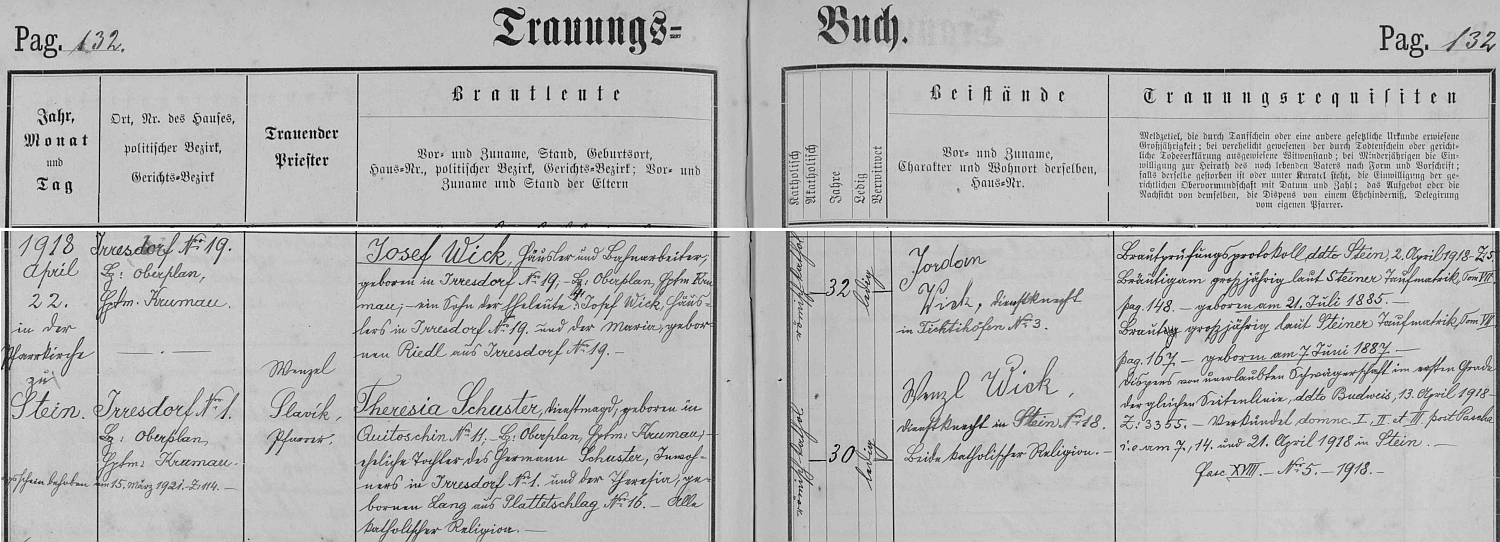 Pag. 132.
Trauungs=
Buch.
Pag. 132
Jahr,
Monat
und
Tag
Ort, Nr. des Hauses,
politischer Bezirk,
Gerichts-Bezirk
Trauender
Priester
Brautleute
Vor- und Zuname, Stand, Geburtsort,
Haus-Nr., politischer Bezirk, Gerichts-Bezirk; Vor- und
Zuname und Stand der Eltern
Katholisch
Akatholisch
Jahre
Ledig
Verwitwet
Beistände
Vor- und Zuname,
Charakter und Wohnort derselben,
Haus-Nr.
Trauungsrequisiten
Meldzettel, die durch Taufschein oder eine andere gesetzliche Urkunde erwiesene
Großjährigkeit; bei verehelicht gewesenen der durch Todtenschein oder gericht-
liche Todeserklärung ausgewiesene Witwenstand; bei Minderjährigen die Ein-
willigung zur Heirath des noch lebenden Vaters nach Form und Vorschrift;
falls derselbe gestorben ist oder unter Kuratel steht, die Einwilligung der ge-
richtlichen Obervormundschaft mit Datum und Zahl; das Aufgebot oder die
Nachsicht von demselben, die Dispens von einem Ehehinderniß, Delegirung
vom eigenen Pfarrer.
1918
April
22.
in der
Pfarrkirche
zu
Stein.
Irresdorf Nro 19.
Bz: Oberplan,
Hptm. Krumau.
Irresdorf Nro 1.
Bz: Oberplan,
Hptm: Krumau.
behoben am 15. März 1921. Z: 114. —
Wenzel
Slavík,
Pfarrer.
Josef Wick, Häusler und Bahnarbeiter,
geboren in Irresdorf No 19, Bz. Oberplan, Hptm Kru-
mau; — ein Sohn der Eheleute Josef Wick, Häus-
lers in Irresdorf No 19. und der Maria, gebor-
nen Riedl aus Irresdorf No 19. —
Theresia Schuster, Dienstmagd, geboren in
Quitoschin No 11. Bz: Oberplan, Hptm: Krumau; —
eheliche Tochter des Hermann Schuster, Inwoh-
ners in Irresdorf No 1. und der Theresia, ge-
bornen Lang aus Plattetschlag No 16. — Alle
katholischer Religion. —
32
ledig
30
ledig
Jordan
Wick, Dienstknecht
in Tichtihöfen No 3.
Wenzl Wick,
Dienstknecht in Stein No 18.
Beide katholischer Religion. —
Brautprüfungsprotokoll ddto Stein, 2. April 1918 — Z: 5.
Bräutigam großjährig laut Steiner Taufmatrik, Tom VII
pag. 148. — geboren am 21. Juli 1885. —
Braut großjährig laut Steiner Taufmatrik, Tom VII
pag. 167. — geboren am 7. Juni 1887. —
Dispens von unerlaubten Schwägerschaft im ersten Grade
der gleichen Seitenlinie, ddto Budweis, 13. April 1918 —
Z: 3355. — Verkündet domnc. I. II. et III. post Pascha
i. e am 7., 14. und 21. April 1918 in Stein. —
fasc XVIII. — No 5 — 1918. —